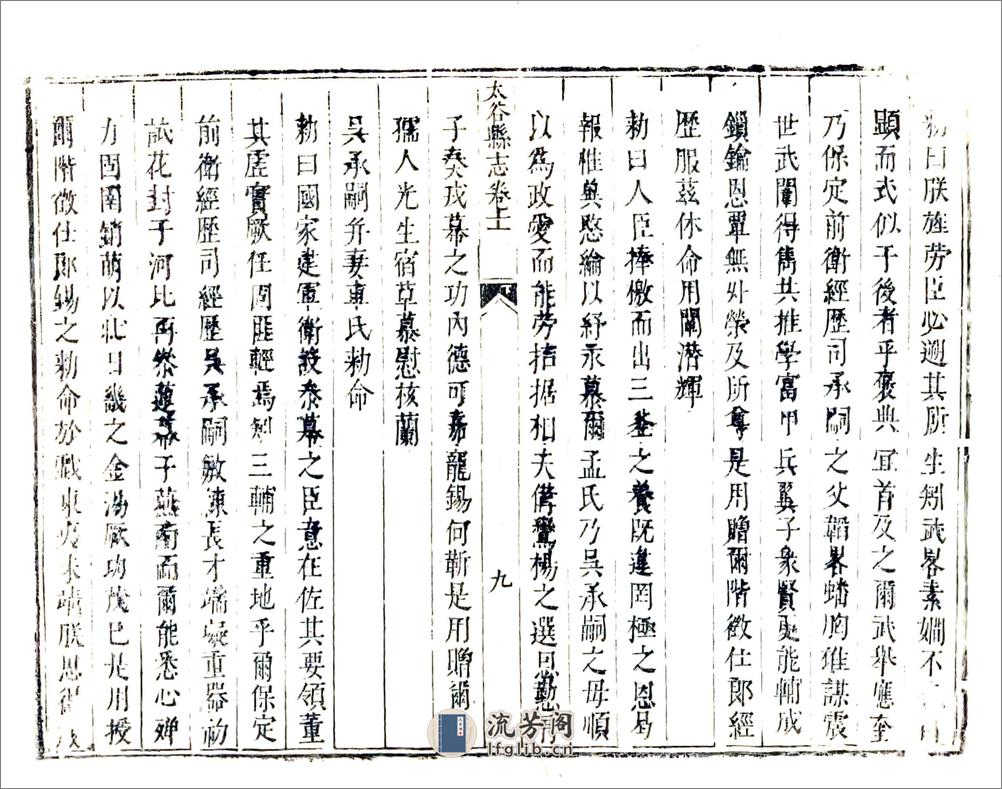 勑曰朕旌劳臣必遡其所生矧武畧素嫺不
顯而式似于後者乎褒典宜首及之爾武舉應奎
乃保定前衛經歷司承嗣之父韜畧蟠胸雄謀震
世武闈得雋共推學富甲兵翼子象賢更能輔成
鎖鑰恩覃無外榮及所尊是用贈爾階徵仕郎經
歷服茲休命用闡潜輝
勑曰人臣捧檄而出三釜之養既違罔極之恩曷
報惟與愍綸以紓永慕爾孟氏乃吳承嗣之母順
以為政愛而能劳拮据相夫儁鸞楊之選恩勤
子奏戎幕之功內德可嘉龍錫何靳是用贈爾
孺人光生宿草慕慰核蘭
吳承嗣并妻車氏勑命
勑曰國家建軍衛設叅幕之臣意在佐其要領董
其虛實厥任固匪輕焉矧三輔之重地乎爾保定
前衛經歷司經歷吳承嗣敏涑長才端凝重器初
試花封于河北再叅蓮幕于燕南而爾能悉心殫
力固圉銷萌以壮日畿之金湯厥功茂巳是用授
爾階徵仕郎錫之勑命於戲東夷未靖朕思得
太谷縣志卷上
九
流芳阁
lfglib.cn